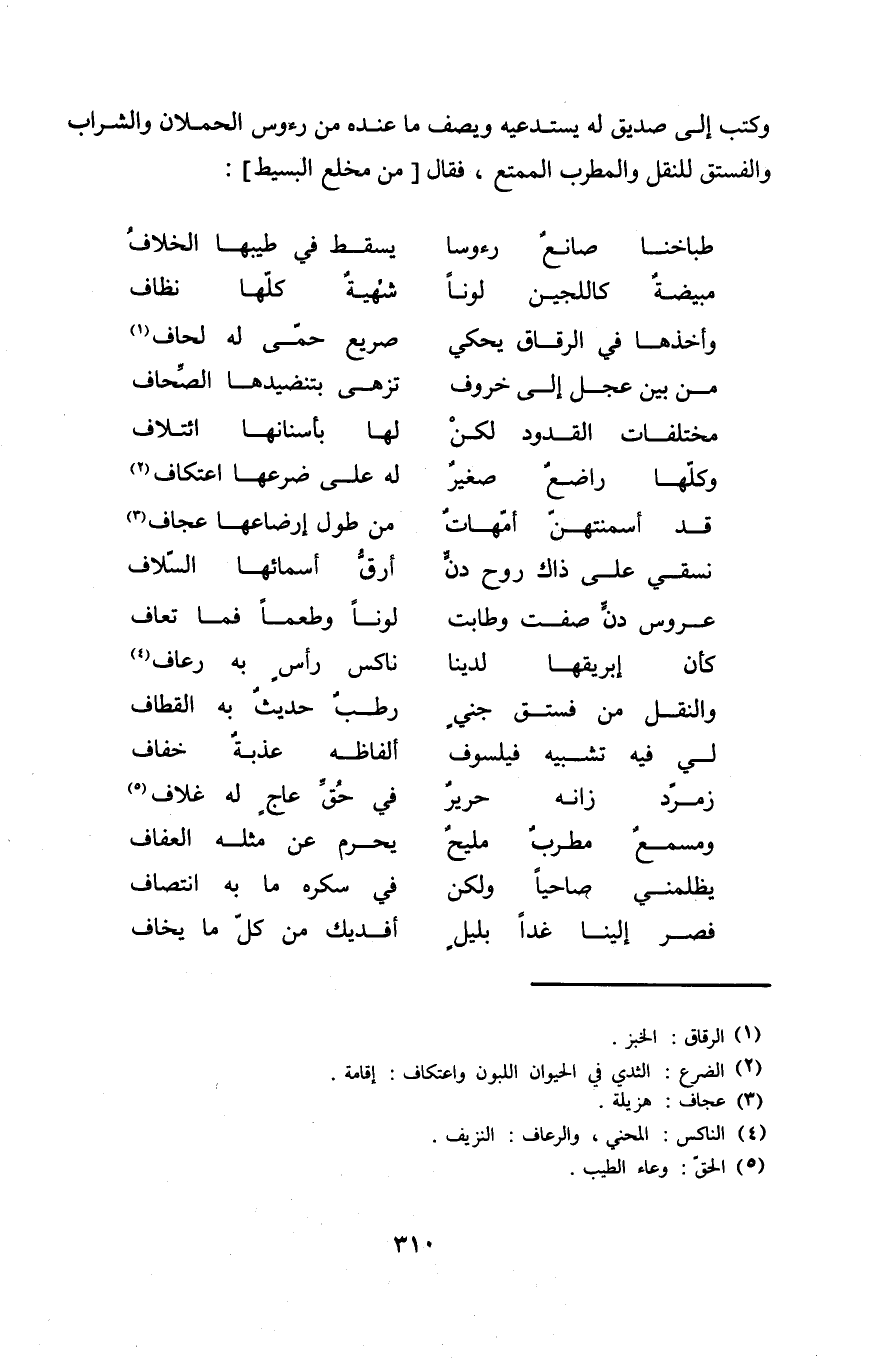 وكتب إلى صديق له يستدعيه ويصف ما عنده من رءوس الحملان والشراب
والفستق للنقل والمطرب الممتع ، فقال [ من مخلع البسيط ] :
طباخنا صانعٌ رءوسا يسقط في طيبها الخلافُ
مبيضةٌ كاللجين لوناً شهْيةٌ كلّها نظاف
وأخذها في الرقاق يحكي صريع حمّى له لحاف(١)
من بين عجل إلى خروف تزهى بتنضيدها الصِّحاف
مختلفات القدود لكنْ لها بأسنانها ائتلاف
وكلّها راضعٌ صغيرٌ له على ضرعها اعتكاف(٢)
قد أسمنتهنّ أمّهاتٌ من طول إرضاعها عجاف(٣)
نسقي على ذاك روح دنٍّ أرقُّ أسمائها السّلاف
عروس دنٍّ صفت وطابت لوناً وطعماً فما تعاف
كأن إبريقها لدينا ناكس رأسٍ به رعاف(٤)
والنقل من فستق جنيٍ رطبٌ حديثٌ به القطاف
لي فيه تشبيه فيلسوف ألفاظه عذبةٌ خفاف
زمرّد زانه حريرٌ في حُقِّ عاجٍ له غلاف(٥)
ومسمعٌ مطربٌ مليحٌ يحرم عن مثله العفاف
يظلمني صاحياً ولكن في سكره ما به انتصاف
فصر إلينا غداً بليلٍ أفديك من كلّ ما يخاف
(١) الرقاق : الخبز .
(٢) الضرع : الثدي في الحيوان اللبون واعتكاف : إقامة .
(٣) عجاف : هزيلة .
(٤) الناكس : المحني ، والرعاف : النزيف .
(٥) الحقّ : وعاء الطيب .
٣١٠